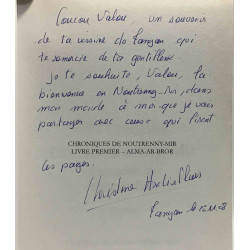 Coucou Valou, un souvenir
de ta voisine de Lanyon qui
te remercie de ta gentillesse
je te souhaite, Valou, la
bienvenue en Noutrenny-Mir, dans
mon monde à moi que je veux
partager avec ceux qui liront
CHRONIQUES DE NOUTRENNY-MIR
LIVRE PREMIER – ALMA-AR-BROR
les pages.
Christine
le 15.11.08